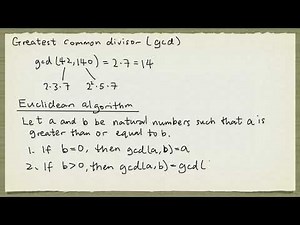 Greatest common divisor (gcd)
gcd (42,140) = 2·7 = 14
2·3·7 2²·5·7
Euclidean algorithm
Let a and b be natural numbers such that a is
greater than or equal to b.
1. If b=0, then gcd(a,b)=a
2. If b>0, then gcd(a,b)=gcd(